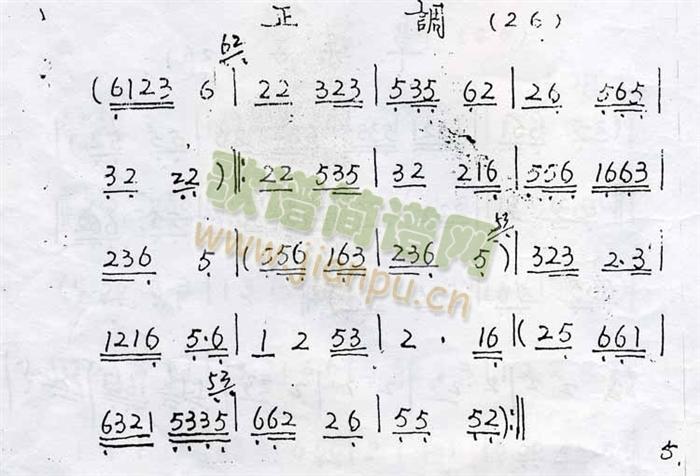 正 調 (26)
62
(6123 6 | 22 323 | 535 62 | 26 565 |
32 22) ‖: 22 535 | 32 216 | 556 1663
53
236 5 ‖ (556 163 | 236 5) | 323 2.3 |
1216 5.6 | 1 2 53 | 2 . 16 ‖ (25 661 |
53
6321 5335 | 662 26 | 55 52) :‖
5.
歌谱简谱网
www.jianpu.cn